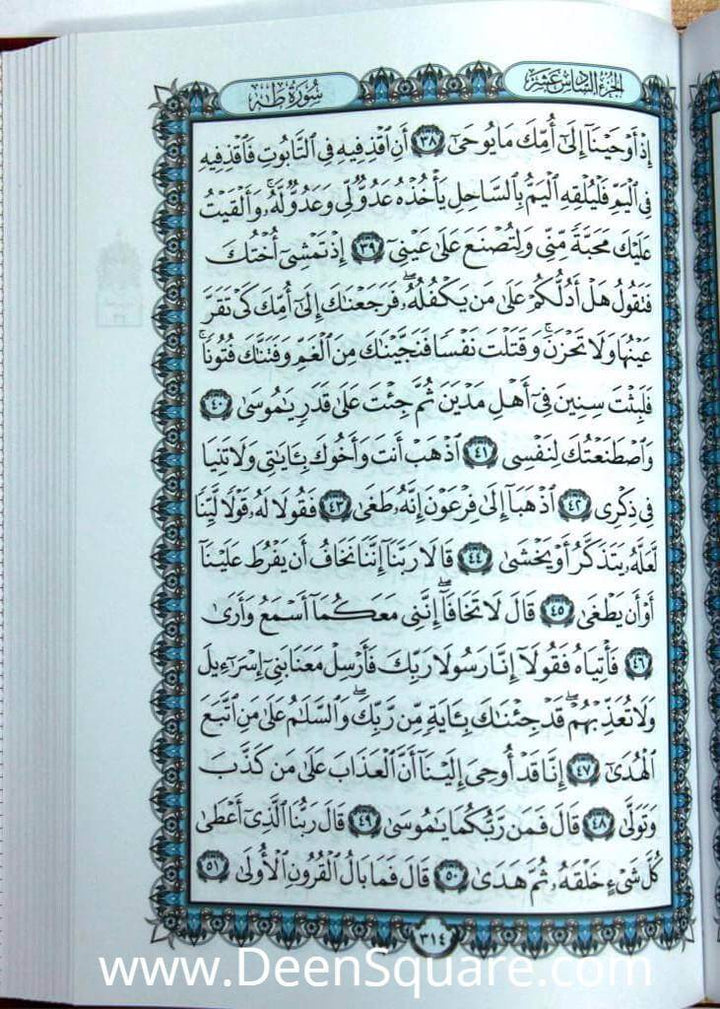 الجزء السادس عشر
سورة طه
إِذْ أَوْحَيْنَآ إِلَىٰٓ أُمِّكَ مَا يُوحَىٰٓ ٣٨ أَنِ ٱقْذِفِيهِ فِى ٱلتَّابُوتِ فَٱقْذِفِيهِ
فِى ٱلْيَمِّ فَلْيُلْقِهِ ٱلْيَمُّ بِٱلسَّاحِلِ يَأْخُذْهُ عَدُوٌّ لِّى وَعَدُوٌّ لَّهُۥ ۚ وَأَلْقَيْتُ
عَلَيْكَ مَحَبَّةً مِّنِّى وَلِتُصْنَعَ عَلَىٰ عَيْنِىٓ ٣٩ إِذْ تَمْشِىٓ أُخْتُكَ
فَتَقُولُ هَلْ أَدُلُّكُمْ عَلَىٰ مَن يَكْفُلُهُۥ ۖ فَرَجَعْنَٰكَ إِلَىٰٓ أُمِّكَ كَىْ تَقَرَّ
عَيْنُهَا وَلَا تَحْزَنَ ۚ وَقَتَلْتَ نَفْسًا فَنَجَّيْنَٰكَ مِنَ ٱلْغَمِّ وَفَتَنَّٰكَ فُتُونًا ۚ
فَلَبِثْتَ سِنِينَ فِىٓ أَهْلِ مَدْيَنَ ثُمَّ جِئْتَ عَلَىٰ قَدَرٍ يَٰمُوسَىٰ ٤٠
وَٱصْطَنَعْتُكَ لِنَفْسِى ٤١ ٱذْهَبْ أَنتَ وَأَخُوكَ بِـَٔايَٰتِى وَلَا تَنِيَا
فِى ذِكْرِى ٤٢ ٱذْهَبَآ إِلَىٰ فِرْعَوْنَ إِنَّهُۥ طَغَىٰ ٤٣ فَقُولَا لَهُۥ قَوْلًا لَّيِّنًا
لَّعَلَّهُۥ يَتَذَكَّرُ أَوْ يَخْشَىٰ ٤٤ قَالَا رَبَّنَآ إِنَّنَا نَخَافُ أَن يَفْرُطَ عَلَيْنَآ
أَوْ أَن يَطْغَىٰ ٤٥ قَالَ لَا تَخَافَآ ۖ إِنَّنِى مَعَكُمَآ أَسْمَعُ وَأَرَىٰ
٤٦ فَأْتِيَاهُ فَقُولَآ إِنَّا رَسُولَا رَبِّكَ فَأَرْسِلْ مَعَنَا بَنِىٓ إِسْرَٰٓءِيلَ
وَلَا تُعَذِّبْهُمْ ۖ قَدْ جِئْنَٰكَ بِـَٔايَةٍ مِّن رَّبِّكَ ۖ وَٱلسَّلَٰمُ عَلَىٰ مَنِ ٱتَّبَعَ
ٱلْهُدَىٰٓ ٤٧ إِنَّا قَدْ أُوحِىَ إِلَيْنَآ أَنَّ ٱلْعَذَابَ عَلَىٰ مَن كَذَّبَ
وَتَوَلَّىٰ ٤٨ قَالَ فَمَن رَّبُّكُمَا يَٰمُوسَىٰ ٤٩ قَالَ رَبُّنَا ٱلَّذِىٓ أَعْطَىٰ
كُلَّ شَىْءٍ خَلْقَهُۥ ثُمَّ هَدَىٰ ٥٠ قَالَ فَمَا بَالُ ٱلْقُرُونِ ٱلْأُولَىٰ ٥١
٣١٤
www.DeenSquare.com